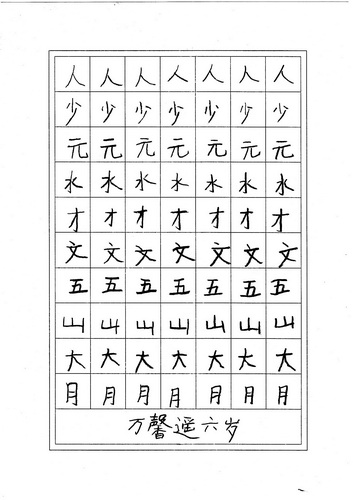 人人人人人人人
少少少少少少少
元元元元元元元
水水水水水水水
才才才才才才才
文文文文文文文
五五五五五五五
山山山山山山山
大大大大大大大
月月月月月月月
万馨遥六岁